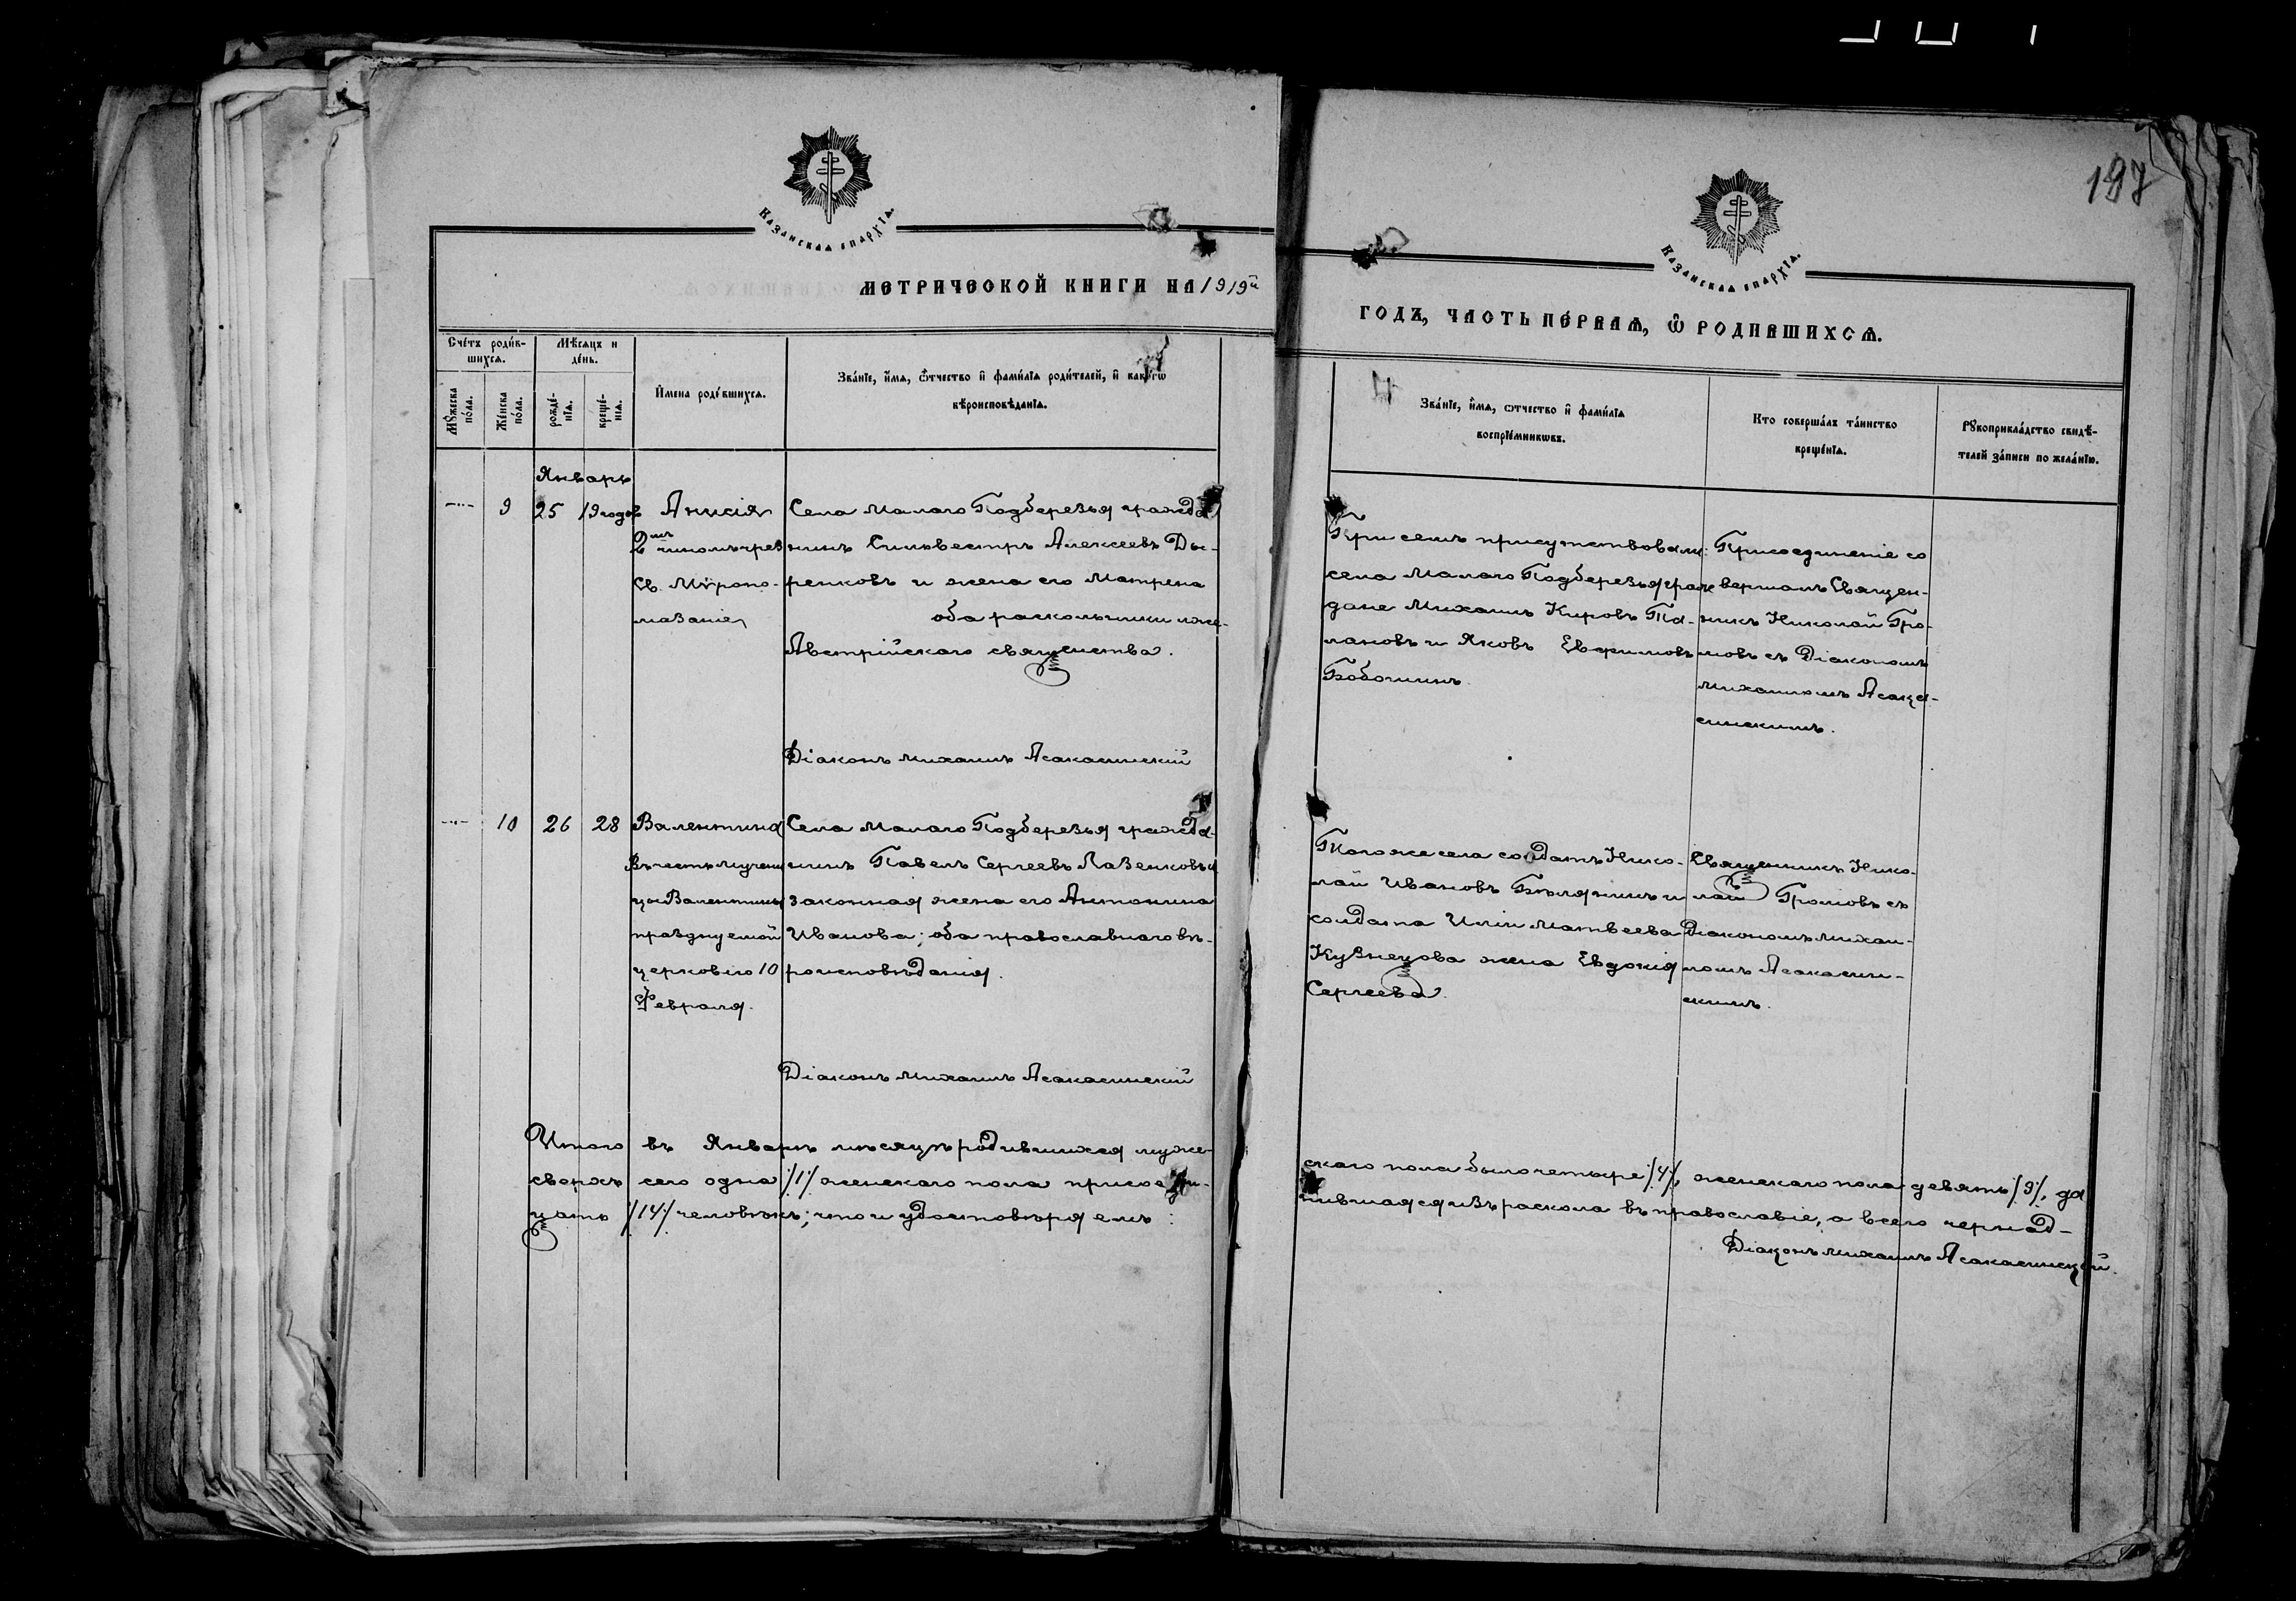 197
Казанская епархїѧ.
Казанская епархїѧ.
МЕТРИЧЕСКОЙ КНИГИ НА 1919й
ГОДЪ, ЧАСТЬ ПЕ́РВАѦ, Ѡ҆ РОДИВШИХСѦ.
Сче́тъ роди́в-
шихся.
Мѣ́сяцъ и
де́нь.
Мꙋ́жеска
по́ла.
Же́нска
по́ла.
рожде́-
нїѧ.
креще́-
нїѧ.
И҆мена роди́вшихся.
Зва́нїе, и҆́мѧ, ѻ҆́тчество и҆ фами́лїѧ роди́телей, и҆ какогѡ
вѣроисповѣ́данїѧ.
Зва́нїе, и҆́мѧ, ѻтчество и҆ фами́лїѧ
воспрїе́мниковъ.
Кто соверша́лъ та́инство
креще́нїѧ.
Рꙋкоприкла́дство свидѣ́-
телей за́писи по жела́нїю.
Январь
9 25 19 годовъ Анисія
2мъ чиномъ чрез
Св. Мѵропо-
мазаніе
Села Малаго Подберезья гражда-
нинъ Сильвестръ Алексеевъ Ды-
ренковъ и жена его Матрена
оба раскольники лже-
Австрійскаго священства.
Діаконъ Михаилъ Асакасинскій
При семъ присутствовали:
села Малаго Подберезья граж
дане Михаилъ Кировъ Па-
лановъ и Яковъ Евфимовъ
Бобошинъ
Присоединеніе со
вершалъ Священ-
никъ Николай Гро-
мовъ съ Діакономъ
Михаиломъ Асака-
синскимъ.
10 26 28 Валентина
Въ честь мучени
цы Валентины
празднуемой
церковію 10
Февраля.
Села Малаго Подберезья гражда-
нинъ Павелъ Сергеевъ Лазенковъ и
законная жена его Антонина
Иванова; оба православнаго вѣ-
роисповѣданія.
Діаконъ Михаилъ Асакасинскій
Того же села солдатъ Нико-
лай Ивановъ Бѣлянинъ и
солдата Иліи Матвеева
Кузнецова жена Евдокія
Сергеева.
Священникъ Нико-
лай Громовъ съ
Діакономъ Михаи-
ломъ Асакасин-
скимъ.
Итого въ Январѣ мѣсяцѣ родившихся муже-
скаго пола было четыре /4/, женскаго пола девять /9/, да
сверхъ сего одна /1/ женскаго пола присоеди-
нившаяся изъ раскола въ православіе, а всего чернад-
цать /14/ человѣкъ; что и удостовѣряемъ:
Діаконъ Михаилъ Асакасинскій.